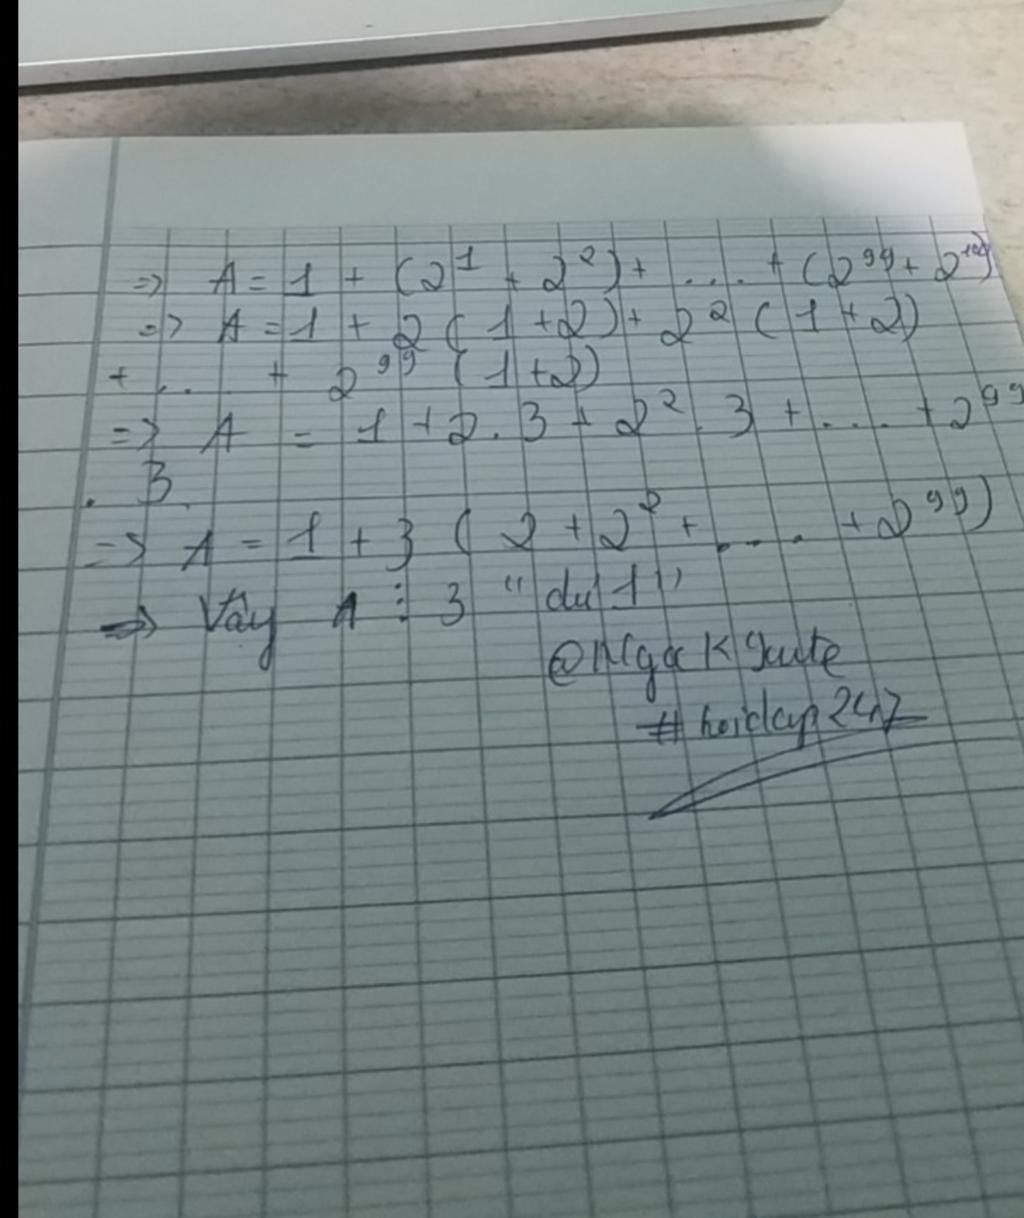 => A = 1 + (2¹ + 2²) + .... + (2⁹⁹ + 2¹⁰⁰)
=> A = 1 + 2 (1+2) + 2² (1+2)
+ ... + 2⁹⁹ (1+2)
=> A = 1 + 2 . 3 + 2² . 3 + .... + 2⁹⁹
. 3
=> A = 1 + 3 ( 2 + 2² + .... + 2⁹⁹)
=> Vậy A ⋮ 3 "dư 1"
#hoidap247